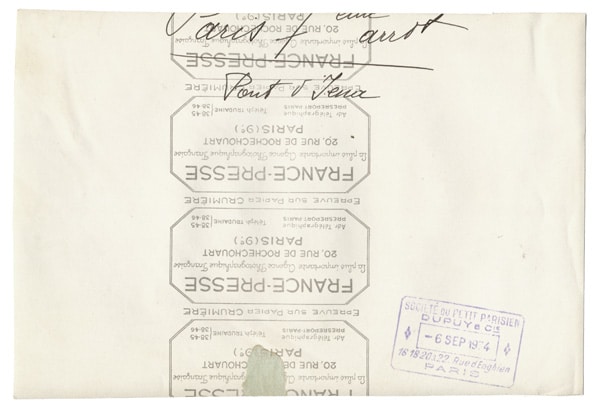 Paris 7 eme arrot
Pont d'Iena
FRANCE-PRESSE
La plus importante Agence Photographique Française
20, RUE DE ROCHECHOUART
PARIS (9e)
EPREUVE SUR PAPIER CRUMIÈRE
FRANCE-PRESSE
La plus importante Agence Photographique Française
20, RUE DE ROCHECHOUART
PARIS (9e)
Adr Télégraphique PRESREPORT PARIS Téleph TRUDAINE 38-45 38-46
EPREUVE SUR PAPIER CRUMIÈRE
FRANCE-PRESSE
La plus importante Agence Photographique Française
20, RUE DE ROCHECHOUART
PARIS (9e)
Adr Télégraphique PRESREPORT PARIS Téleph TRUDAINE 38-45 38-46
EPREUVE SUR PAPIER CRUMIÈRE
FRANCE-PRESSE
La plus importante Agence Photographique Française
20, RUE DE ROCHECHOUART
PARIS (9e)
Adr Télégraphique PRESREPORT PARIS Téleph TRUDAINE 38-45 38-46
SOCIÉTÉ DU PETIT PARISIEN
DUPUY & Cie
-6 SEP
16 18 20 & 22, Rue d'Enghien
PARIS